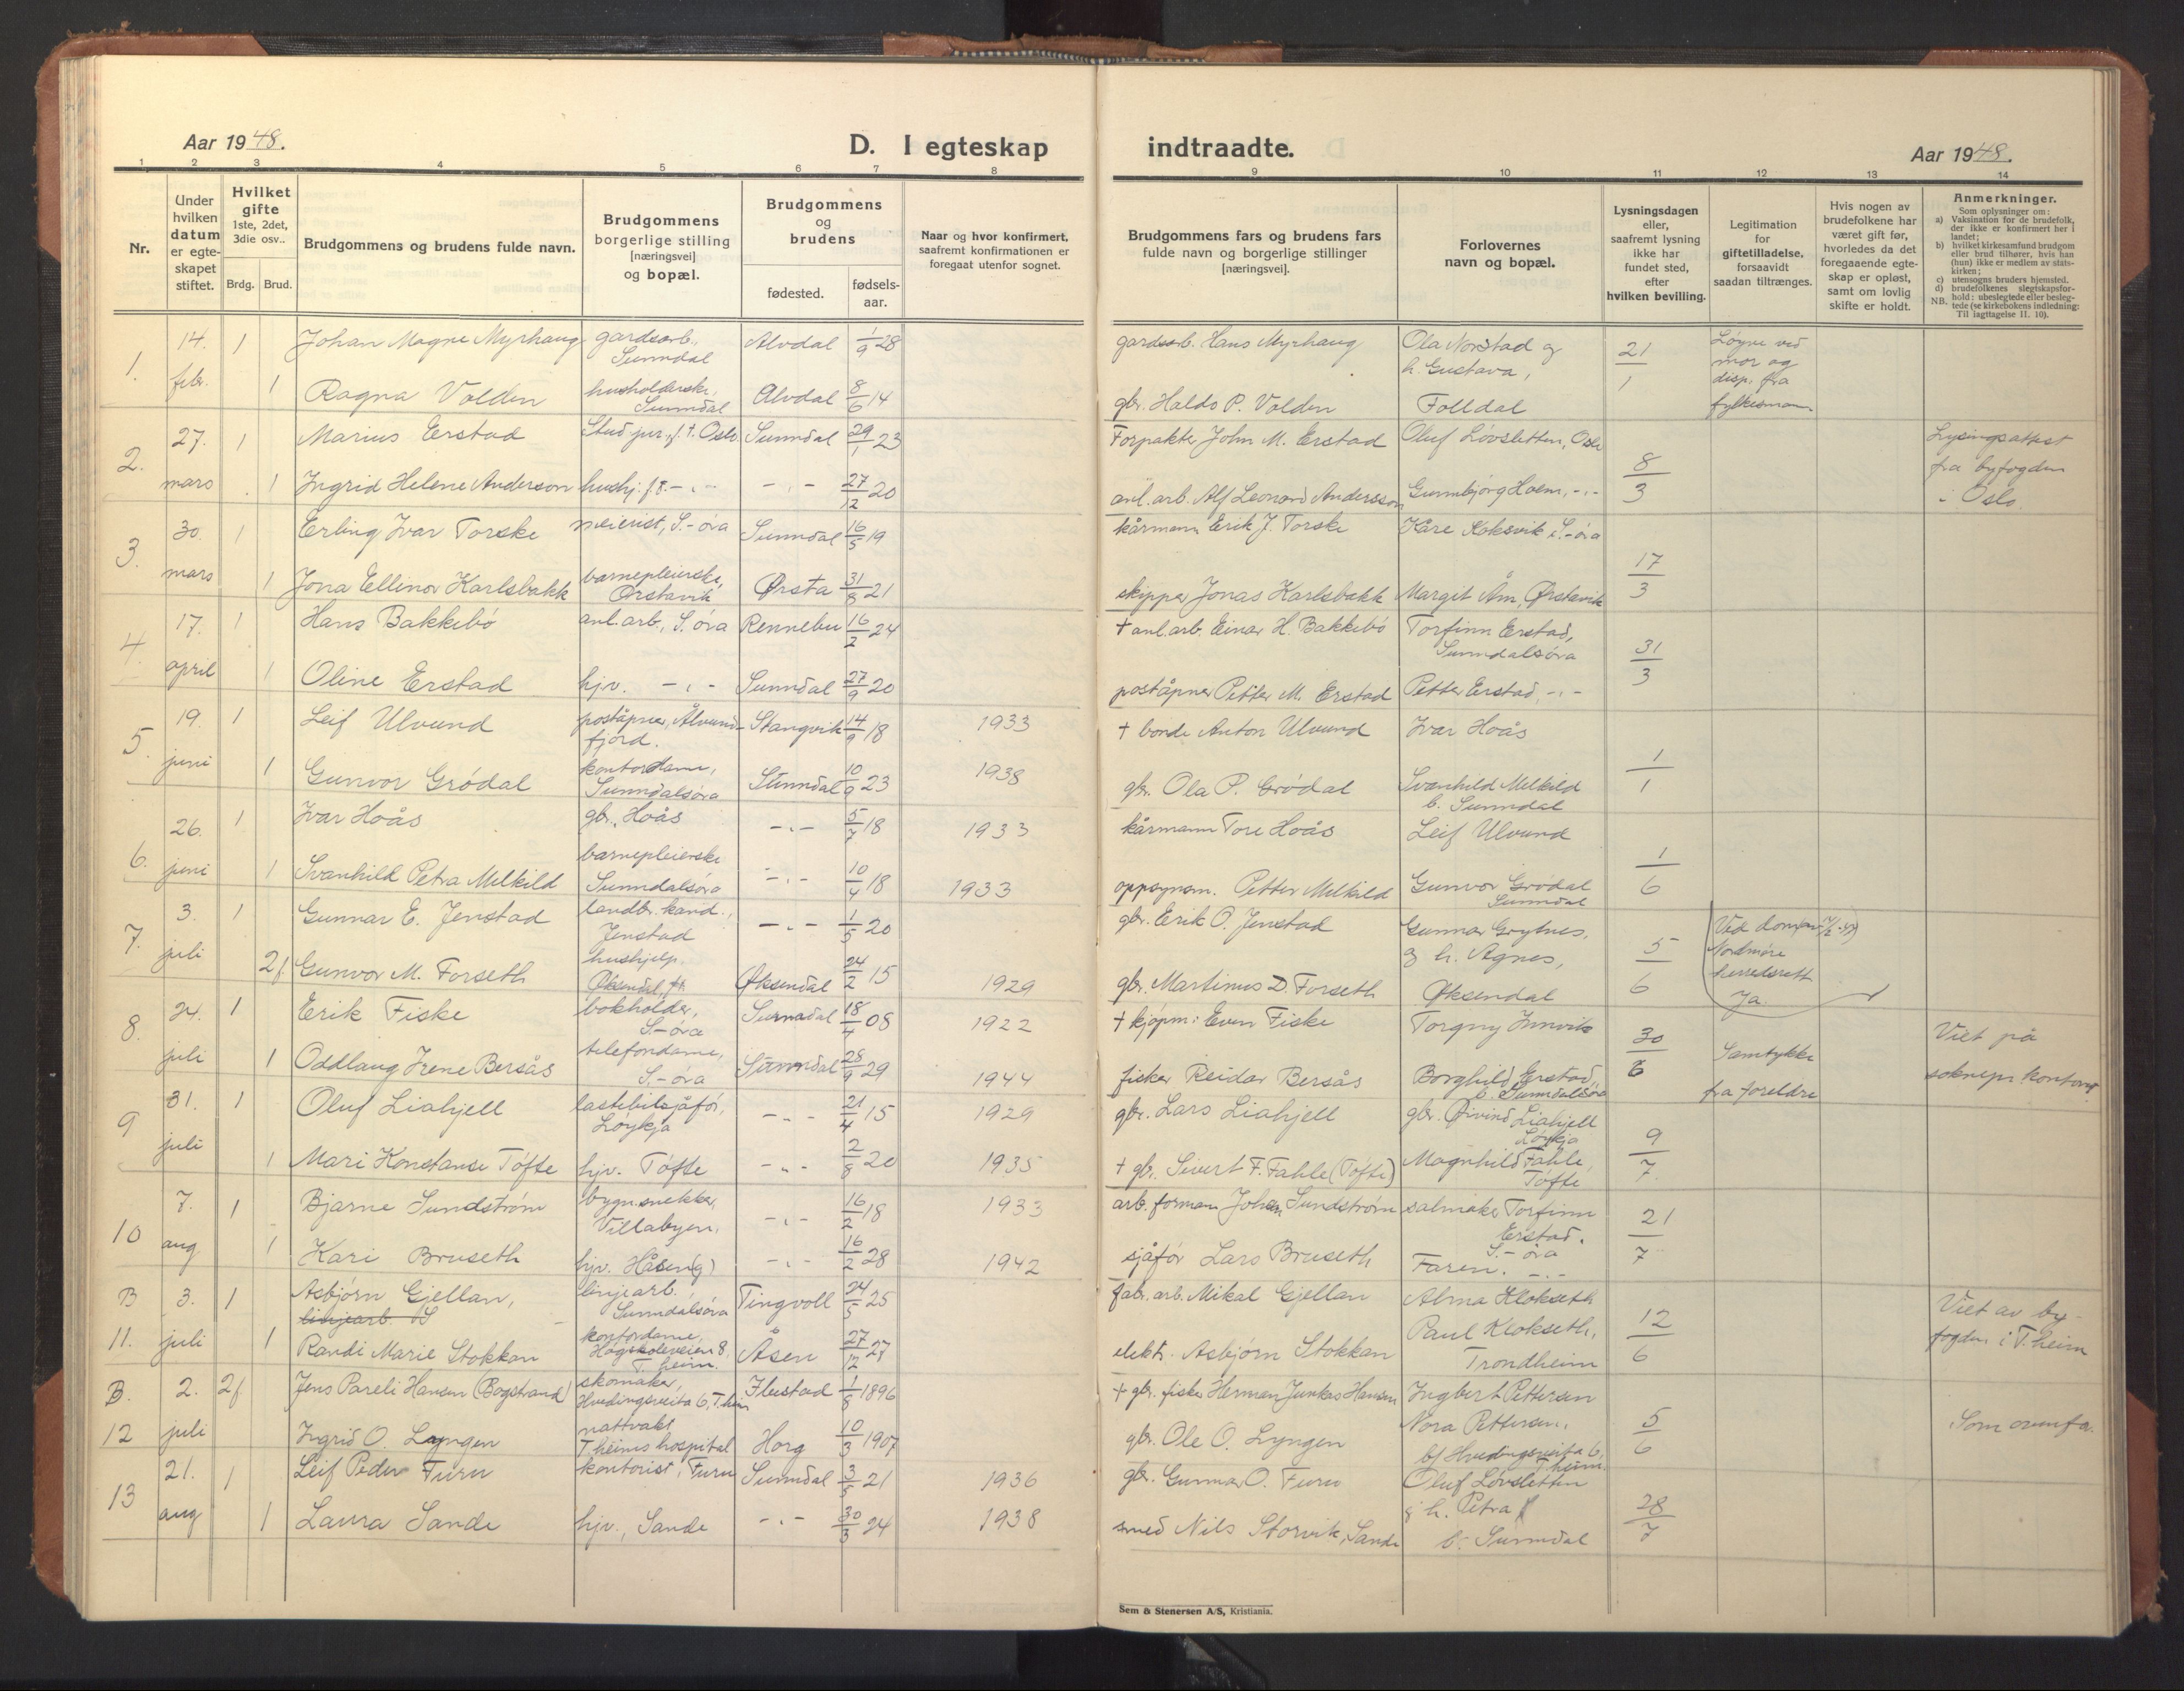 Aar 1948.
D. I egteskap
indtraadte.
Aar 1948.
1 2 3 4 5 6 7 8 9 10 11 12 13 14
Nr.
Under hvilken datum er egteskapet stiftet.
Hvilket gifte 1ste, 2det, 3die osv..
Brdg. Brud.
Brudgommens og brudens fulde navn.
Brudgommens borgerlige stilling [næringsvei] og bopæl.
Brudgommens og brudens
fødested.
fødselsaar.
Naar og hvor konfirmert, saafremt konfirmationen er foregaat utenfor sognet.
Brudgommens fars og brudens fars fulde navn og borgerlige stillinger [næringsvei].
Forlovernes navn og bopæl.
Lysningsdagen eller, saafremt lysning ikke har fundet sted, efter hvilken bevilling.
Legitimation for giftetilladelse, forsaavidt saadan tiltrænges.
Hvis nogen av brudefolkene har været gift før, hvorledes da det foregaaende egteskap er opløst, samt om lovlig skifte er holdt.
Anmerkninger.
Som oplysninger om:
a) Vaksination for de brudefolk, der ikke er konfirmert her i landet;
b) hvilket kirkesamfund brudgom eller brud tilhører, hvis han (hun) ikke er medlem av statskirken;
c) utensogns bruders hjemsted.
d) brudefolkenes slegtskapsforhold: ubeslegtede eller beslegtede (se kirkebokens indledning: Til iagttagelse II. 10).
NB.
1. 14. febr. 1 Johan Magne Myrhaug gardsarb., Sunndal Alvdal 1/9 28 gardsarb. Hans Myrhaug Ola Norstad og h. Gustava, 21/1 Løyve ved mor og disp. fra fylkesmann
1 Ragna Volden husholderske, Sunndal Alvdal 8/6 14 gbr. Haldo P. Volden Folldal
2. 27. mars 1 Marius Erstad Stud jur., f.t. Oslo Sunndal 29/1 23 Forpakter John M. Erstad Oluf Løvsletten, Oslo 8/3 Lysingsattest fra byfogden i Oslo
1 Ingrid Helene Anderson hushj. f.t. -,- -,- 27/12 20 anl. arb. Alf Leonard Andersson Gunnbjørg Hoem, -,-
3. 30. mars 1 Erling Ivar Torske meierist, S.-øra Sunndal 16/5 19 kårmann Erik J. Torske Kåre Koksvik S.-øra 17/3
1 Jona Ellinor Karlsbakk barnepleierske, Ørstavik Ørsta 31/8 21 skipper Jonas Karlsbakk Margit Åm, Ørstavik
4. 17. april 1 Hans Bakkebø anl. arb., S. øra Rennebu 16/2 24 + anl. arb. Einar H. Bakkebø Torfinn Erstad, Sunndalsøra 31/3
1 Oline Erstad hjv. -,- Sunndal 27/9 20 poståpner Petter M. Erstad Petter Erstad, -,-
5. 19. juni 1 Leif Ulvund poståpner, Ålvundfjord. Stangvik 14/9 18 1933 + bonde Anton Ulvund Ivar Hoås 1/1
1 Gunvor Grødal kontordame, Sunndalsøra Sunndal 10/9 23 1938 gbr. Ola P. Grødal Svanhild Melkild b. Sunndal
6. 26. juni 1 Ivar Hoås gbr., Hoås -,- 5/7 18 1933 kårmann Tore Hoås Leif Ulvund 1/6
1 Svanhild Petra Melkild barnepleierske Sunndalsøra -,- 10/4 18 1933 oppsynsm. Petter Melkild Gunvor Grødal Sunndal
7. 3. juli 1 Gunnar E. Jenstad landbr. kand., Jenstad -,- 1/5 20 gbr. Erik O. Jenstad Gunnar Grytnes, og h. Agnes, 5/6 Ved dom Nordmøre herredsrett Ja.
2f. Gunvor M. Forseth hushjelp. Øksendal, f.t. Øksendal 24/2 15 1929 gbr. Martinus D. Forseth Øksendal
8. 24. juli 1 Erik Fiske bokholder, S.-øra Surnadal 18/4 08 1922 + kjøpm: Even Fiske Torgny Innvik 30/6 Samtykke fra foreldre Viet på sokneprkontoret
1 Oddlaug Irene Bersås telefondame, S.-øra Sunndal 28/9 29 1944 fisker Reidar Bersås Borghild Erstad, b. Sunndalsøra
9 31. juli 1 Oluf Liahjell lastebilsjåfør, Løykja -,- 21/4 15 1929 gbr. Lars Liahjell gbr. Øivind Liahjell Løykja 9/7.
1 Mari Konstanse Tøfte hjv. Tøfte -,- 2/8 20 1935 + gbr. Sivert F. Fahle (Tøfte) Magnhild Fahle, Tøfte
10 7. aug 1 Bjarne Sundstrøm bygn.snekker, Villabyen, -,- 16/2 18 1933 arb. formann Johan Sundstrøm salmaker Torfinn Erstad. S.-øra 21/7
1 Kari Bruseth hjv. Håsen(g) -,- 16/2 28 1942 sjåfør Lars Bruseth Faren. -,-
B 11. 3. juli 1 Asbjørn Gjellan, linjearb. S linjearb. Sunndalsøra Tingvoll 24/5 25 fabr. arb. Mikal Gjellan Alma Klokseth 12/6 Viet av byfogden i T.heim
1 Randi Marie Stokkan kontordame, Høgskoleveien 8, T.heim. Åsen 27/12 27 elektr. Asbjørn Stokkan Paul Klokseth, Trondheim
B. 12 2. juli 2f Jens Pareli Hansen (Bogstrand) skomaker, Hvedingsveita 6, T.heim Flustad 1/8 1896 + gbr. fisker Herman Junkas Hansen Ingbert Pettersen 5/6 Som ovenfor.
Ingrid O. Lyngen nattvakt T.heims hospital Horg 10/3 1907 gbr. Ole O. Lyngen Nora Pettersen, bf Hvedingsveita 6, T.heim.
13 21. aug 1 Leif Peder Furu kontorist, Furu Sunndal 3/5 21 1936 gbr. Gunnar O. Furu Oluf Løvsletten 28/7
1 Laura Sande hjv., Sande -,- 30/3 24 1938 smed Nils Storvik, Sande og h. Petra b. Sunndal
Sem & Stenersen A/S, Kristiania.